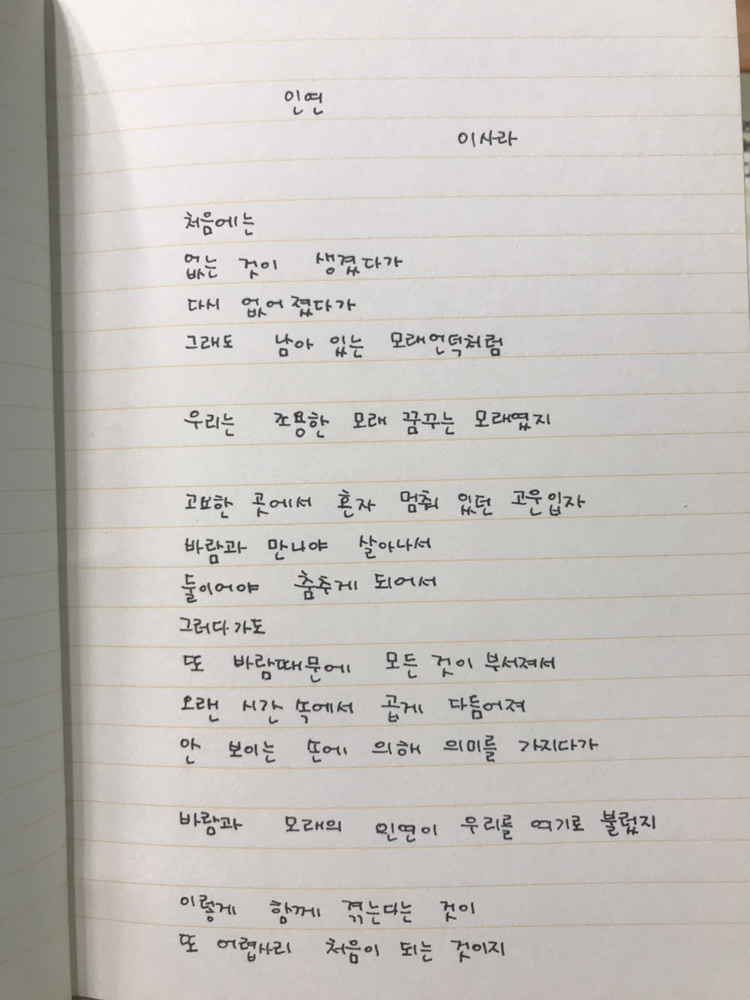 인연
이사라
처음에는
없는 것이 생겼다가
다시 없어졌다가
그래도 남아 있는 모래언덕처럼
우리는 조용한 모래 꿈꾸는 모래였지
고요한 곳에서 혼자 멈춰 있던 고운입자
바람과 만나야 살아나서
둘이어야 춤추게 되어서
그러다가도
또 바람때문에 모든 것이 부서져서
오랜 시간 속에서 곱게 다듬어져
안 보이는 손에 의해 의미를 가지다가
바람과 모래의 인연이 우리를 여기로 불렀지
이렇게 함께 겪는다는 것이
또 어렵사리 처음이 되는 것이지